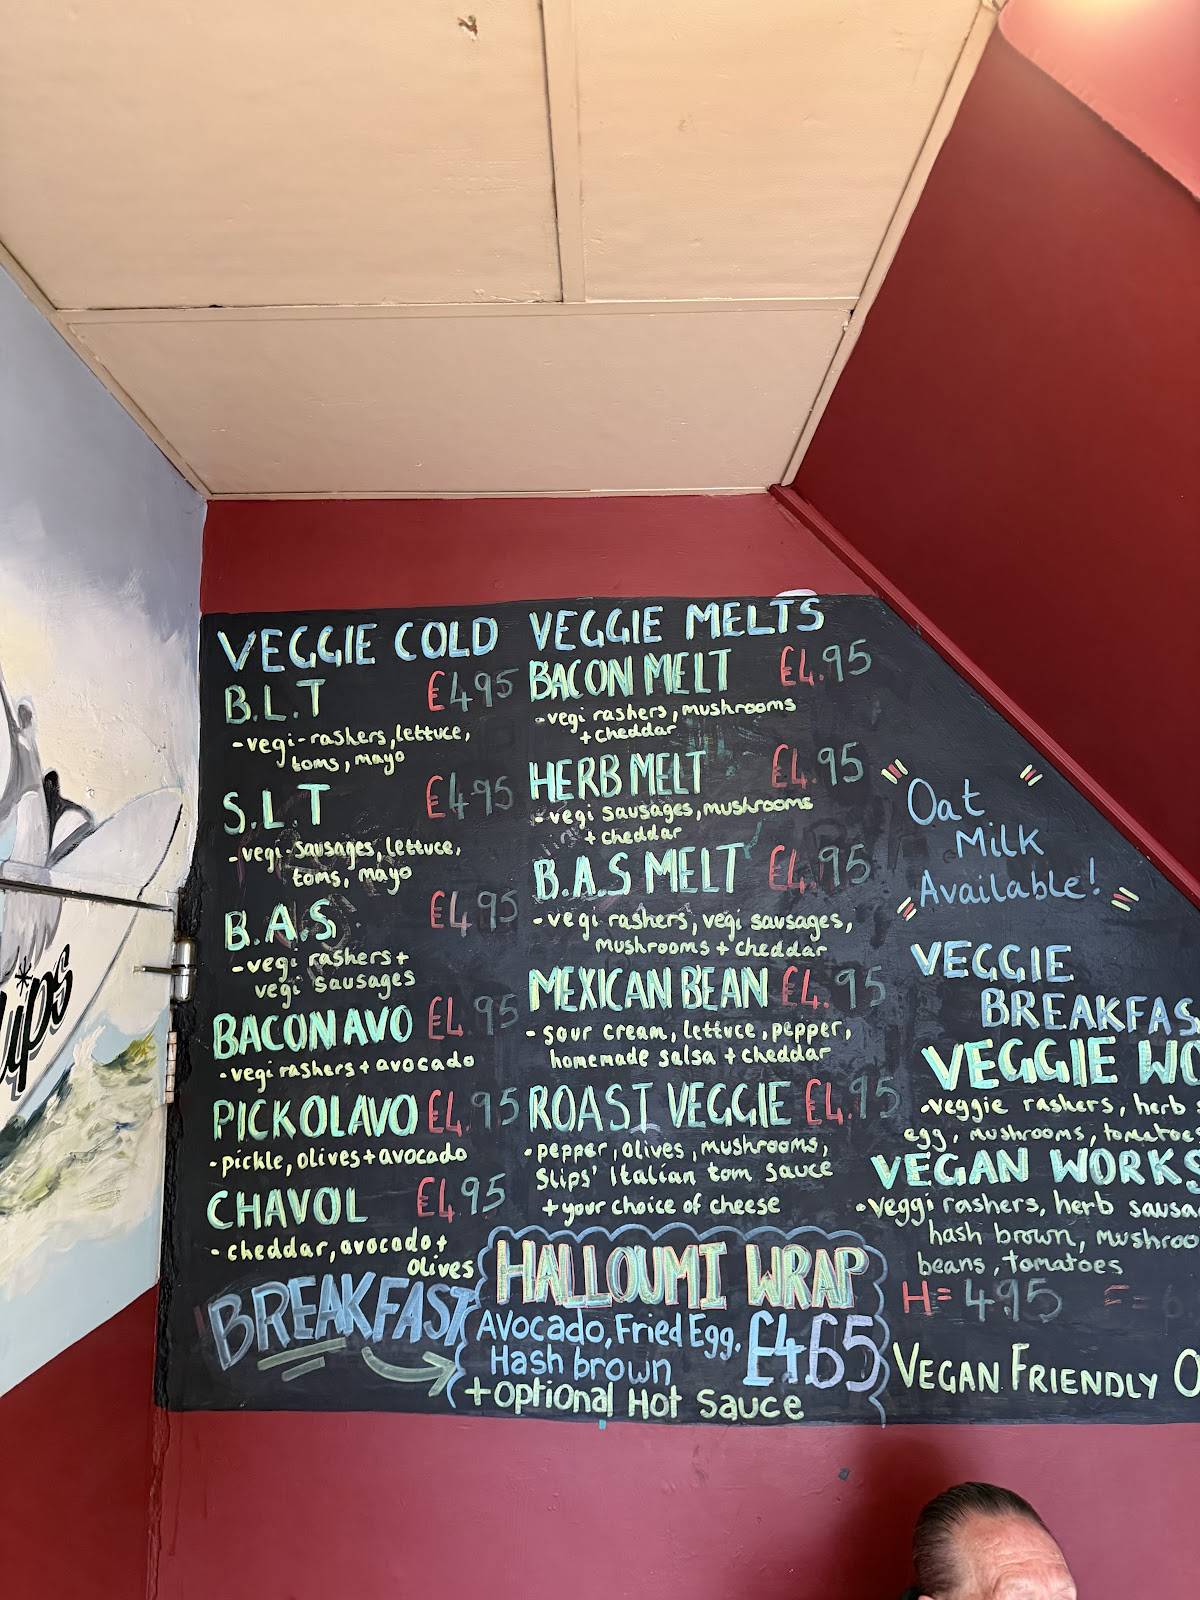 VEGGIE COLD
B.L.T £4.95
- vegi-rashers, lettuce,
toms, mayo
S.L.T £4.95
- vegi-sausages, lettuce,
toms, mayo
B.A.S £4.95
- vegi rashers +
vegi sausages
BACON AVO £4.95
- vegi rashers + avocado
PICKOLAVO £4.95
- pickle, olives + avocado
CHAVOL £4.95
- cheddar, avocado +
olives
VEGGIE MELTS
BACON MELT £4.95
- vegi rashers, mushrooms
+ cheddar
HERB MELT £4.95
- vegi sausages, mushrooms
+ cheddar
B.A.S MELT £4.95
- vegi rashers, vegi sausages,
mushrooms + cheddar
MEXICAN BEAN £4.95
- sour cream, lettuce, pepper,
homemade salsa + cheddar
ROAST VEGGIE £4.95
- pepper, olives, mushrooms,
Slips' Italian tom sauce
+ your choice of cheese
BREAKFAST
HALLOUMI WRAP
Avocado, Fried Egg, £4.65
Hash brown
+ optional Hot Sauce
Oat
Milk
Available!
VEGGIE
BREAKFAS
VEGGIE WO
- veggie rashers, herb s
egg, mushrooms, tomatoes
VEGAN WORKS
- veggi rashers, herb sausa
hash brown, mushroo
beans, tomatoes
H= 4.95
VEGAN FRIENDLY O
ips